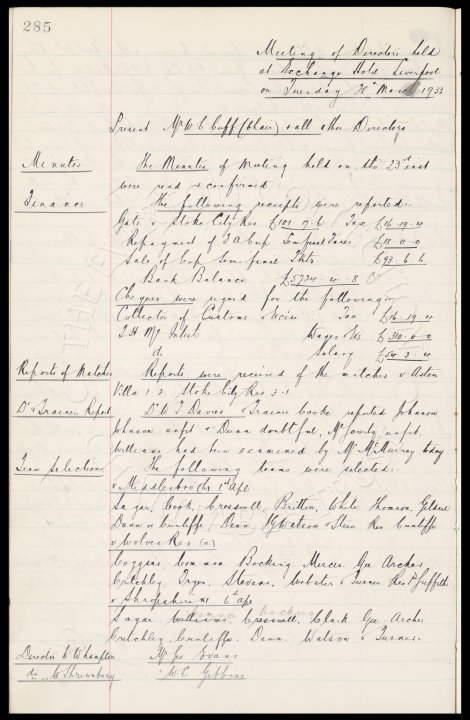 285
Meeting of Directors held
at Exchange Hotel Liverpool
on Tuesday March 1933
Present Mr W C Cuff (Chair) & all other Directors
Minutes The Minutes of Meeting held on the 23rd inst
were read & confirmed
Finance The following receipts were reported:
Gate v Stoke City Res £101. 9. 6 Tax £16. 19. 4
Repayment of F A Cup Semifinal Fares £18. 0. 0
Sale of Cup Semi final Tkts £93. 6. 6
Bank Balance £5724. 4. 8
Cheques were signed for the following:-
Collector of Customs & Excise Tax £16. 19. 4
T H McIntosh Wages £310. 0. 0
do Salary £54. 3. 4
Reports of Matches Reports were received of the matches v Aston
Villa 1-2 Stoke City Res 3-1
Dr & Trainers Report Dr & Trainer Cooke reported Johnson
Johnson unfit & Dunn doubtful, McGourty unfit
Williams had been examined by Mr McMurray today
Team Selections The following teams were selected:
v Middlesbro (h) 1st Apl
Sagar, Cook, Cresswell, Britton, White Thomson, Geldard
Dunn or Cunliffe, Dean, Watson & Stein Res Cunliffe
v Wolves Res (a)
Coggins, Common Bocking Mercer Gee Archer
Critchley, Stevens, Webster & Turner Res P Griffiths
v Shropshire 6th Apl
Common Bocking
Sagar Williams Cresswell Clark Gee Archer
Critchley Cunliffe Dean Watson & Turner
Director to W'hampton Mr Jas Evans
do to Shrewsbury W C Gibbins